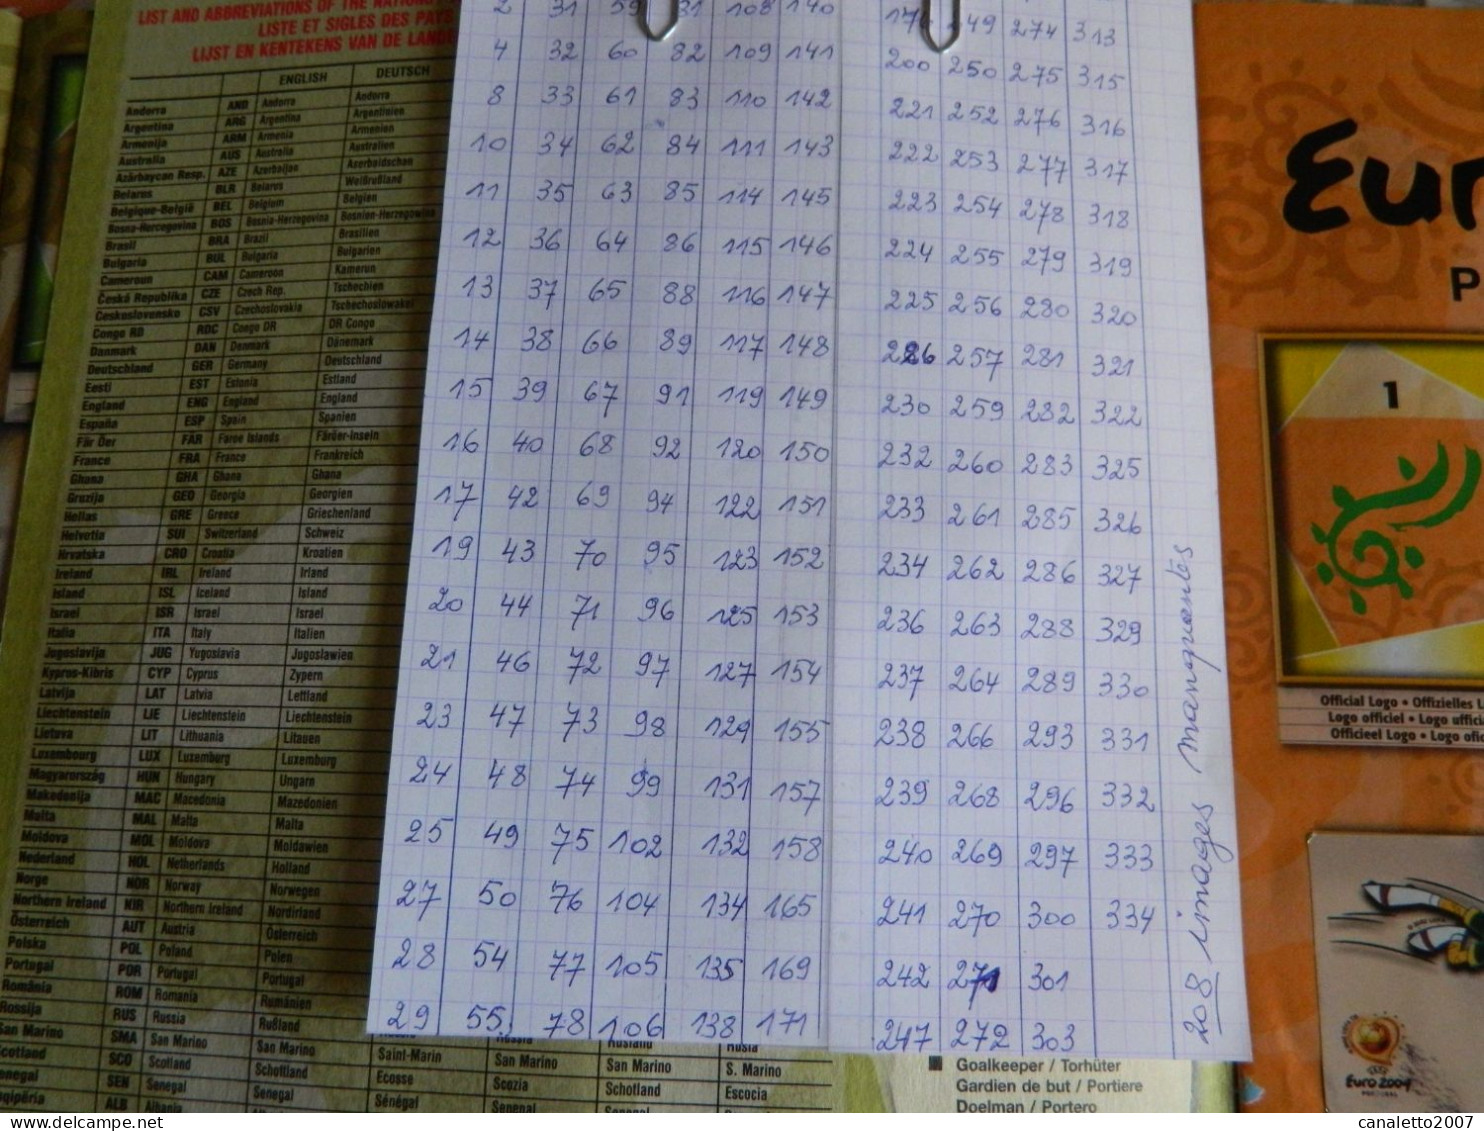 LIST AND ABBREVIATIONS OF THE NATIONS
LISTE ET SIGLES DES PAYS
LIJST EN KENTEKENS VAN DE LANDE
ENGLISH DEUTSCH
Andorra AND Andorra Andorra
Argentina ARG Argentina Argentinien
Armenija ARM Armenia Armenien
Australia AUS Australia Australien
Azärbaycan Resp. AZE Azerbaijan Aserbaidschan
Belarus BLR Belarus Weißrußland
Belgique-België BEL Belgium Belgien
Bosna-Hercegovina BOS Bosnia-Herzegovina Bosnien-Herzegowina
Brasil BRA Brazil Brasilien
Bulgaria BUL Bulgaria Bulgarien
Cameroun CAM Cameroon Kamerun
Česká Republika CZE Czech Rep. Tschechien
Ceskoslovensko CSV Czechoslovakia Tschechoslowakei
Congo RD RDC Congo DR DR Congo
Danmark DAN Denmark Dänemark
Deutschland GER Germany Deutschland
Eesti EST Estonia Estland
England ENG England England
España ESP Spain Spanien
Fär Öer FAR Faroe Islands Färöer-Inseln
France FRA France Frankreich
Ghana GHA Ghana Ghana
Gruzija GEO Georgia Georgien
Hellas GRE Greece Griechenland
Helvetia SUI Switzerland Schweiz
Hrvatska CRO Croatia Kroatien
Ireland IRL Ireland Irland
Island ISL Iceland Island
Israel ISR Israel Israel
Italia ITA Italy Italien
Jugoslavija JUG Yugoslavia Jugoslawien
Kypros-Kibris CYP Cyprus Zypern
Latvija LAT Latvia Lettland
Liechtenstein LIE Liechtenstein Liechtenstein
Lietuva LIT Lithuania Litauen
Luxembourg LUX Luxemburg Luxemburg
Magyarország HUN Hungary Ungarn
Makedonija MAC Macedonia Mazedonien
Malta MAL Malta Malta
Moldova MOL Moldova Moldawien
Nederland HOL Netherlands Holland
Norge NOR Norway Norwegen
Northern Ireland NIR Northern Ireland Nordirland
Österreich AUT Austria Österreich
Polska POL Poland Polen
Portugal POR Portugal Portugal
România ROM Romania Rumänien
Rossija RUS Russia Rußland
San Marino SMA San Marino San Marino Saint-Marin San Marino San Marino S. Marino
Scotland SCO Scotland Schottland Ecosse Scozia Schotland Escocia
Senegal SEN Senegal Senegal Sénégal Senegal
ALB Albania
2 31 59 81 108 140
4 32 60 82 109 141
8 33 61 83 110 142
10 34 62 84 111 143
11 35 63 85 114 145
12 36 64 86 115 146
13 37 65 88 116 147
14 38 66 89 117 148
15 39 67 91 119 149
16 40 68 92 120 150
17 42 69 94 122 151
19 43 70 95 123 152
20 44 71 96 125 153
21 46 72 97 127 154
23 47 73 98 129 155
24 48 74 99 131 157
25 49 75 102 132 158
27 50 76 104 134 165
28 54 77 105 135 169
29 55 78 106 138 171
249 274 313
200 250 275 315
221 252 276 316
222 253 277 317
223 254 278 318
224 255 279 319
225 256 280 320
226 257 281 321
230 259 282 322
232 260 283 325
233 261 285 326
234 262 286 327
236 263 288 329
237 264 289 330
238 266 293 331
239 268 296 332
240 269 297 333
241 270 300 334
242 271 301
247 272 303
208 images manquantes
Goalkeeper / Torhüter
Gardien de but / Portiere
Doelman / Portero
Eur
P
1
Official Logo • Offizielles L
Logo officiel • Logo uffici
Officieel Logo • Logo ofic
Euro 2004
PORTUGAL
delcampe.net
canaletto2007